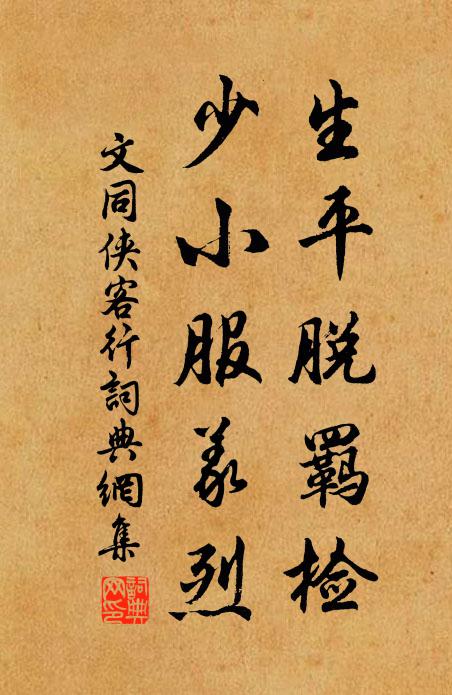 生平脱羁检
少小服义烈
文同侠客行詞典網集
詞典网印